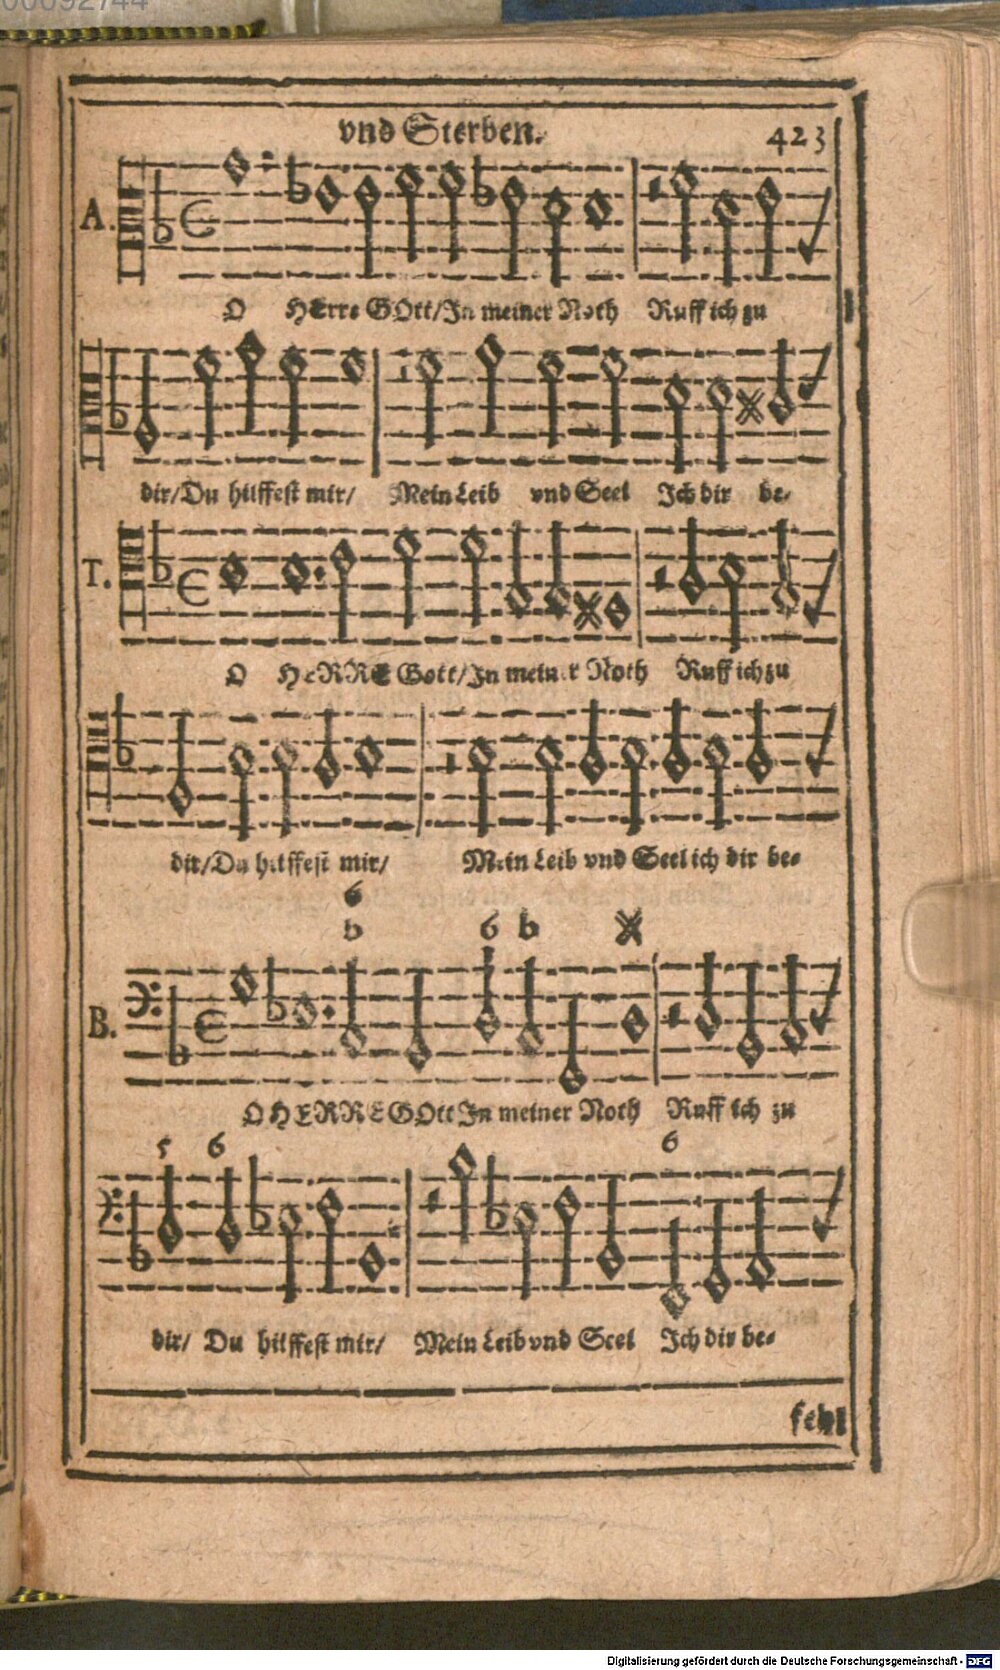 vnd Sterben.
423
A.
O HErre GOtt/In meiner Noth Ruff ich zu
dir/Du hilffest mir/ Mein Leib vnd Seel Ich dir be-
T.
O HeRRE Gott/In meiner Noth Ruff ich zu
dir/Du hilffest mir/ Mein Leib vnd Seel ich dir be-
6
b 6 b
B.
O HERRE GOtt In meiner Noth Ruff ich zu
5 6 6
dir/ Du hilffest mir/ Mein Leib vnd Seel Ich dir be-
fehl
Digitalisierung gefördert durch die Deutsche Forschungsgemeinschaft - DFG